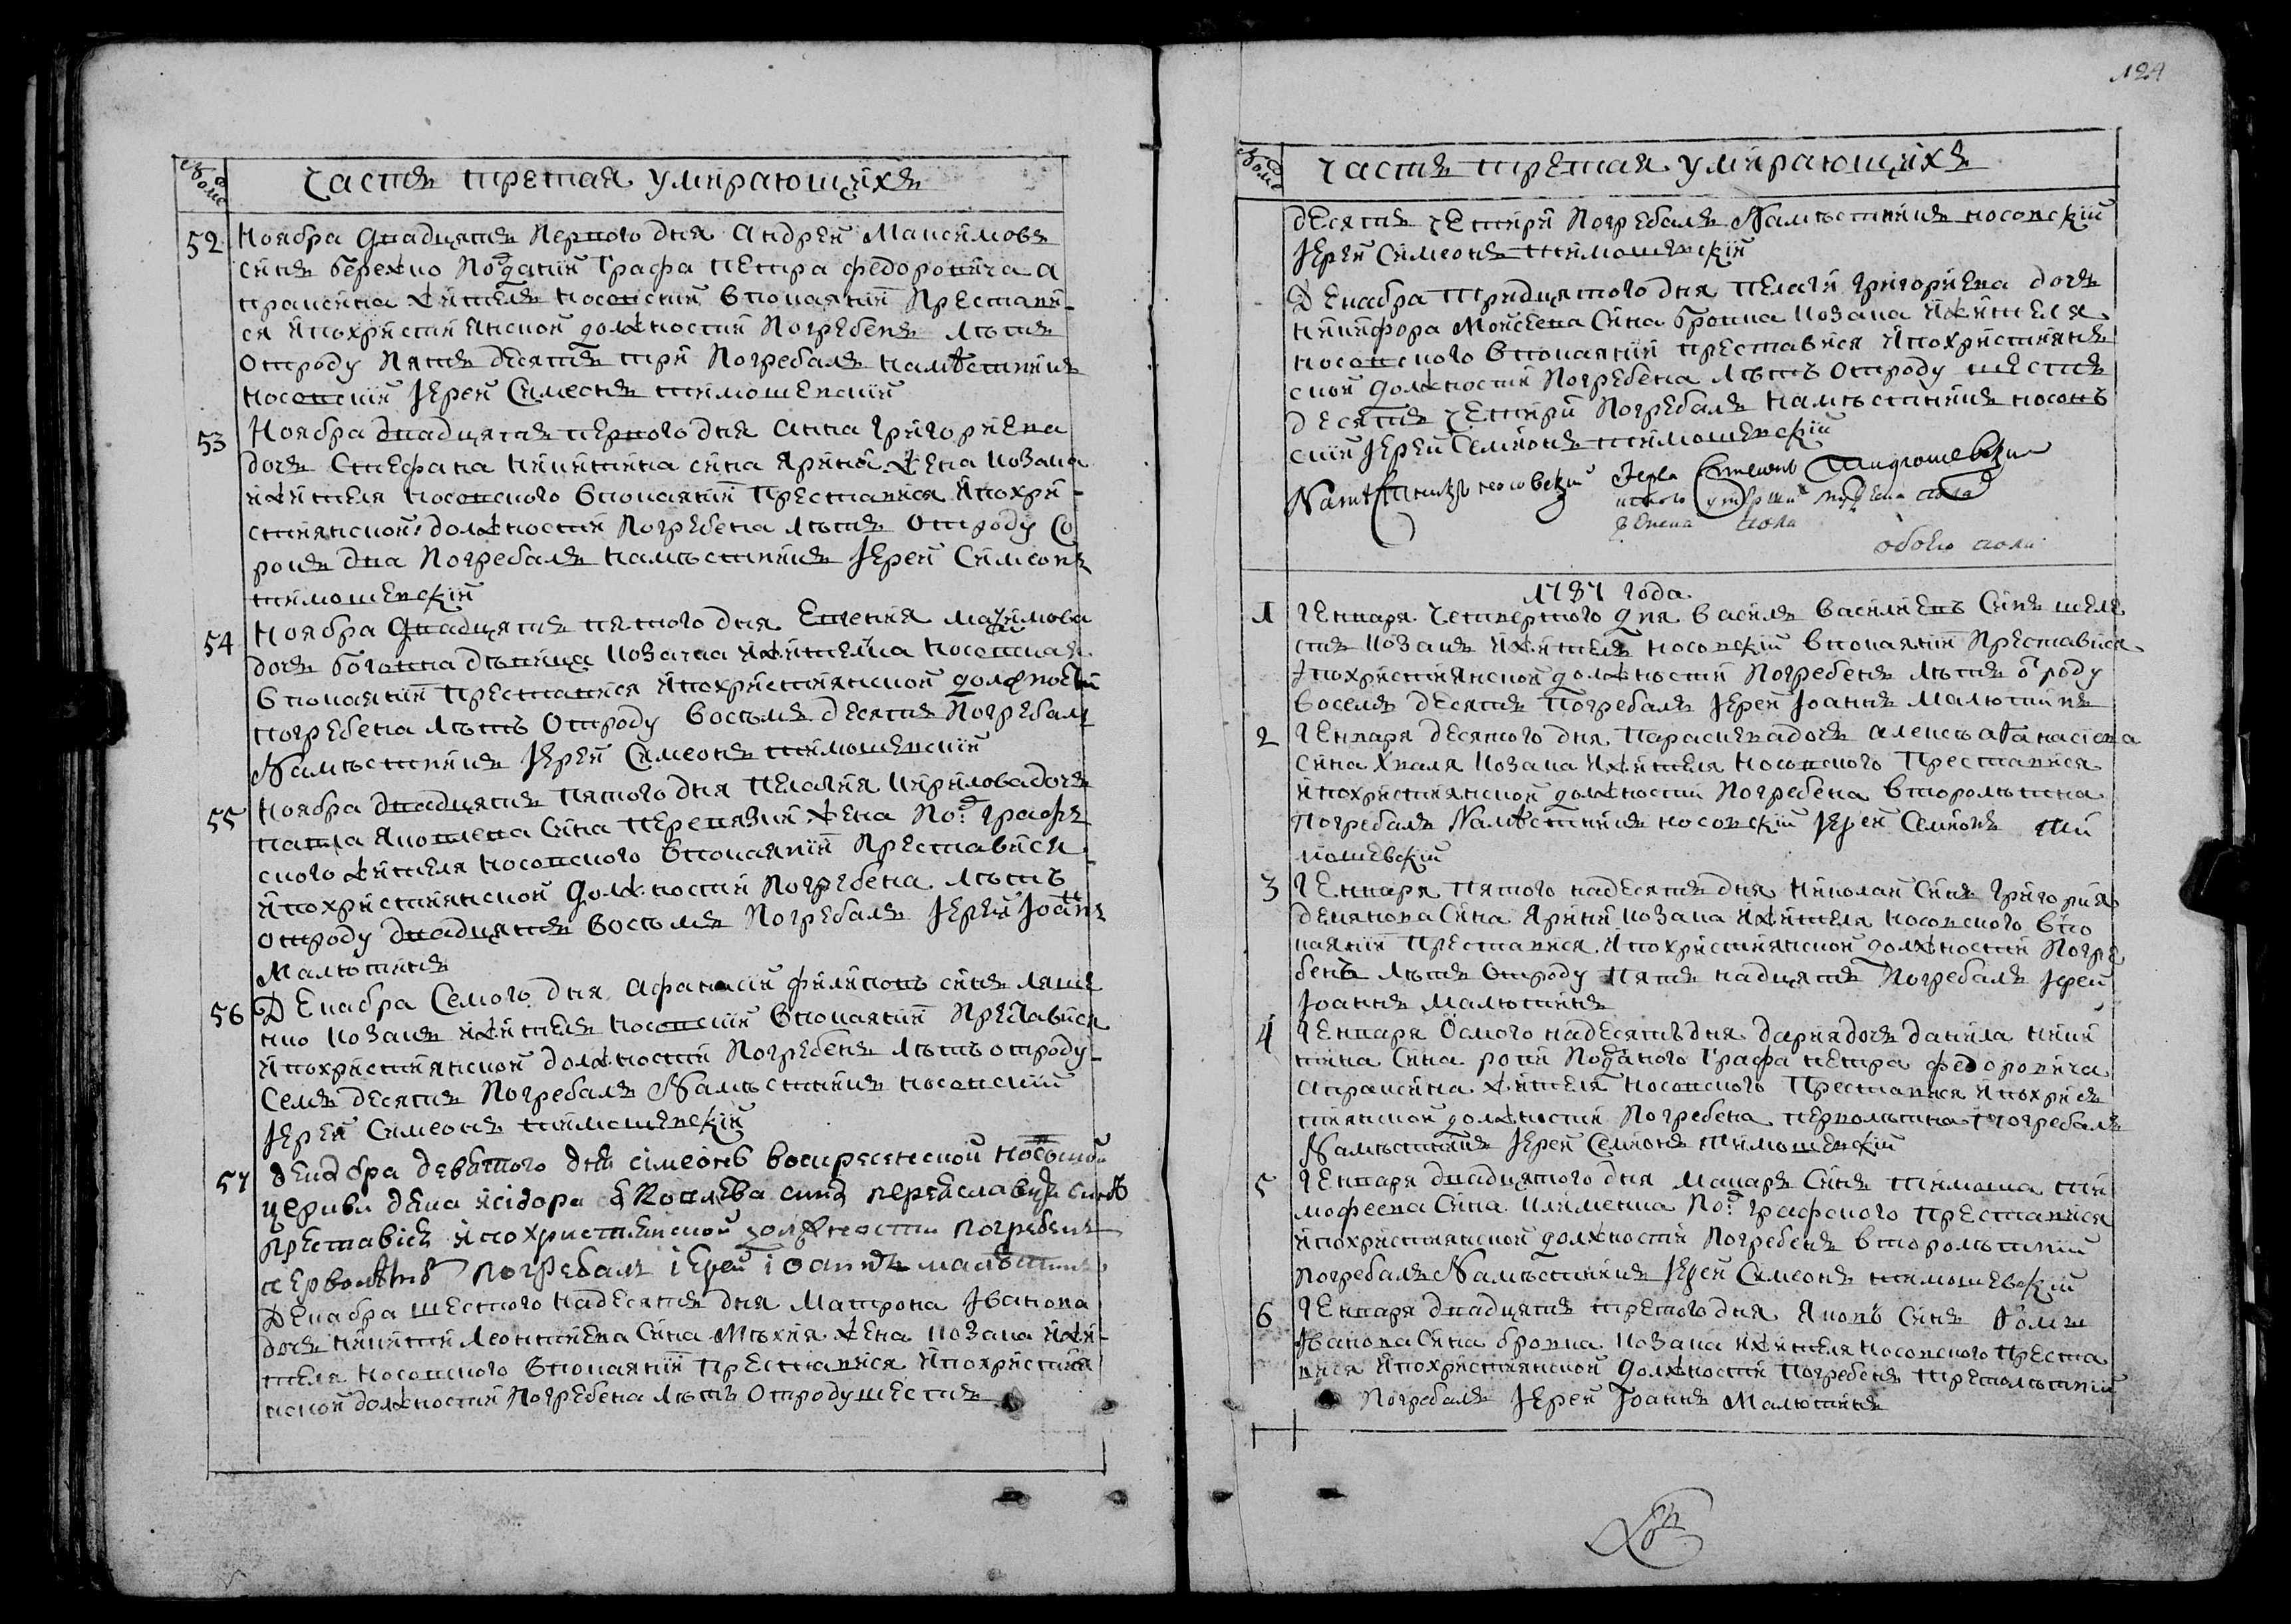 Nомѣ
часть третая умирающихъ
52 Ноября двадцять первого дня Андрей Маѯимовъ
синъ Бережно подданій Графа Петра Федоровича А
праѯина житель носовскій в покаяніи престави-
ся и по христіянской должности погребенъ лѣтъ
отроду пять десять три погребалъ намѣстникъ
носовскій Іерей Симеонъ Тимошевскій
53 Ноября двадцять первого дня Анна Григориева
дочь Стефана Никитина сина жена козака
и жителя носовского в покаяніи преставися и по хри-
стиянской должности погребена лѣтъ отроду со
рокъ два погребалъ намѣстникъ Іерей Симеонъ
Тимошевскій
54 Ноября двадцять пятого дня Евгения Маѯимова
дочь дѣвица козачка и жителка носовская
в покаяніи преставися и по християнской должности
погребена лѣтъ отроду восемь десять погребалъ
намѣстникъ Іерей Симеонъ Тимошевскій
55 Ноября двадцять пятого дня Пелагия Кирилова дочь
Павла Яковлева сина жена под: граф
ского жителя носовского в покаяніи преставися
и по християнской должности погребена лѣтъ
отроду двадцять восемь погребалъ Іерей Іоаннъ
Малютинъ
56 Декабра семого дня Афанасій Филиповъ синъ Ляше
нко козакъ и житель носовскій в покаяніи преставися
и по християнской должности погребенъ лѣтъ отроду
семь десять погребалъ намѣстникъ носовскій
Іерей Симеонъ Тимошевскій
57 декабра девятого дня Сімеонъ воскресенской носовской
церкви дяка Исідора сина синъ
преставися и по християнской должности погребенъ
перволѣтнъ погребалъ іерей іоаннъ малютинъ
Декабра шестого надесять дня Матрона Іванова
дочь Никити Леонтиева сина жена козака и жи-
теля носовского в покаяніи преставися и по христия
нской должности погребена лѣтъ отроду шесть
124
Nомѣ
часть третая умирающихъ
десять четири погребалъ намѣстникъ носовскій
Іерей Симеонъ Тимошевскій
Декабра тридцятого дня Пелагія Григориева дочь
Никифора Мойсеева сина Бровка козака и жителя
носовского в покаяніи преставися и по християнъ
ской должности погребена лѣтъ отроду шесть
десять четири погребалъ намѣстникъ носовъ
скій Іерей Семионъ Тимошевскій
Намѣстникъ носовскій Іерей Симеонъ Тимошевскій
мужеска пола
женска пола
обоего пола
1787 года
1 Генваря четвертого дня Василь Василиевъ синъ Шеле
стъ козакъ и житель носовскій в покаяніи преставися
и по християнской должности погребенъ лѣтъ отроду
восемь десять погребалъ Іерей Іоаннъ Малютинъ
2 Генваря десятого дня Параскева дочь Алеѯѣя Афанасіева
сина Хваля козака и жителя носовского преставися
и по християнской должности погребена второлѣтна
погребалъ намѣстникъ носовскій Іерей Семионъ Ти
мошевскій
3 Генваря пятого надесять дня Николай синъ Григория
Демянова сина козака и жителя носовского в по
каяніи преставися и по християнской должности погре
бенъ лѣтъ отроду пять надцять погребалъ Іерей
Іоаннъ Малютинъ
4 Генваря осмого надесять дня Дария дочь Данила Ники
тина сина подданого Графа Петра Федоровича
Апраѯина жителя носовского преставися и по христ
тиянской должности погребена перволѣтна погребалъ
намѣстникъ Іерей Семионъ Тимошевскій
5 Генваря двадцятого дня Макаръ синъ Тимоша Ти
мофеева сина Клименка под: графского преставися
и по християнской должности погребенъ второлѣтній
погребалъ намѣстникъ Іерей Симеонъ Тимошевскій
6 Генваря двадцять третого дня Яковъ синъ Фоми
Іванова сина Бровка козака и жителя носовского преста
вися и по християнской должности погребенъ третолѣтній
погребалъ Іерей Іоаннъ Малютинъ